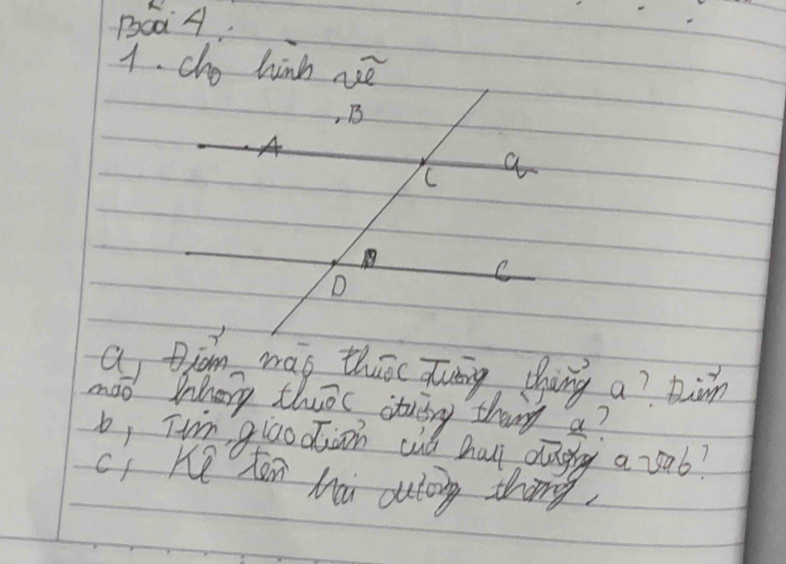 Bài 4:
1. Cho hình vẽ
B
A
C
a
D
c
a, Điểm nào thuộc đường thẳng a? Điểm
nào không thuộc đường thẳng a?
b, Tìm giao điểm của hai đường a và b?
c, Kể tên hai đường thẳng,